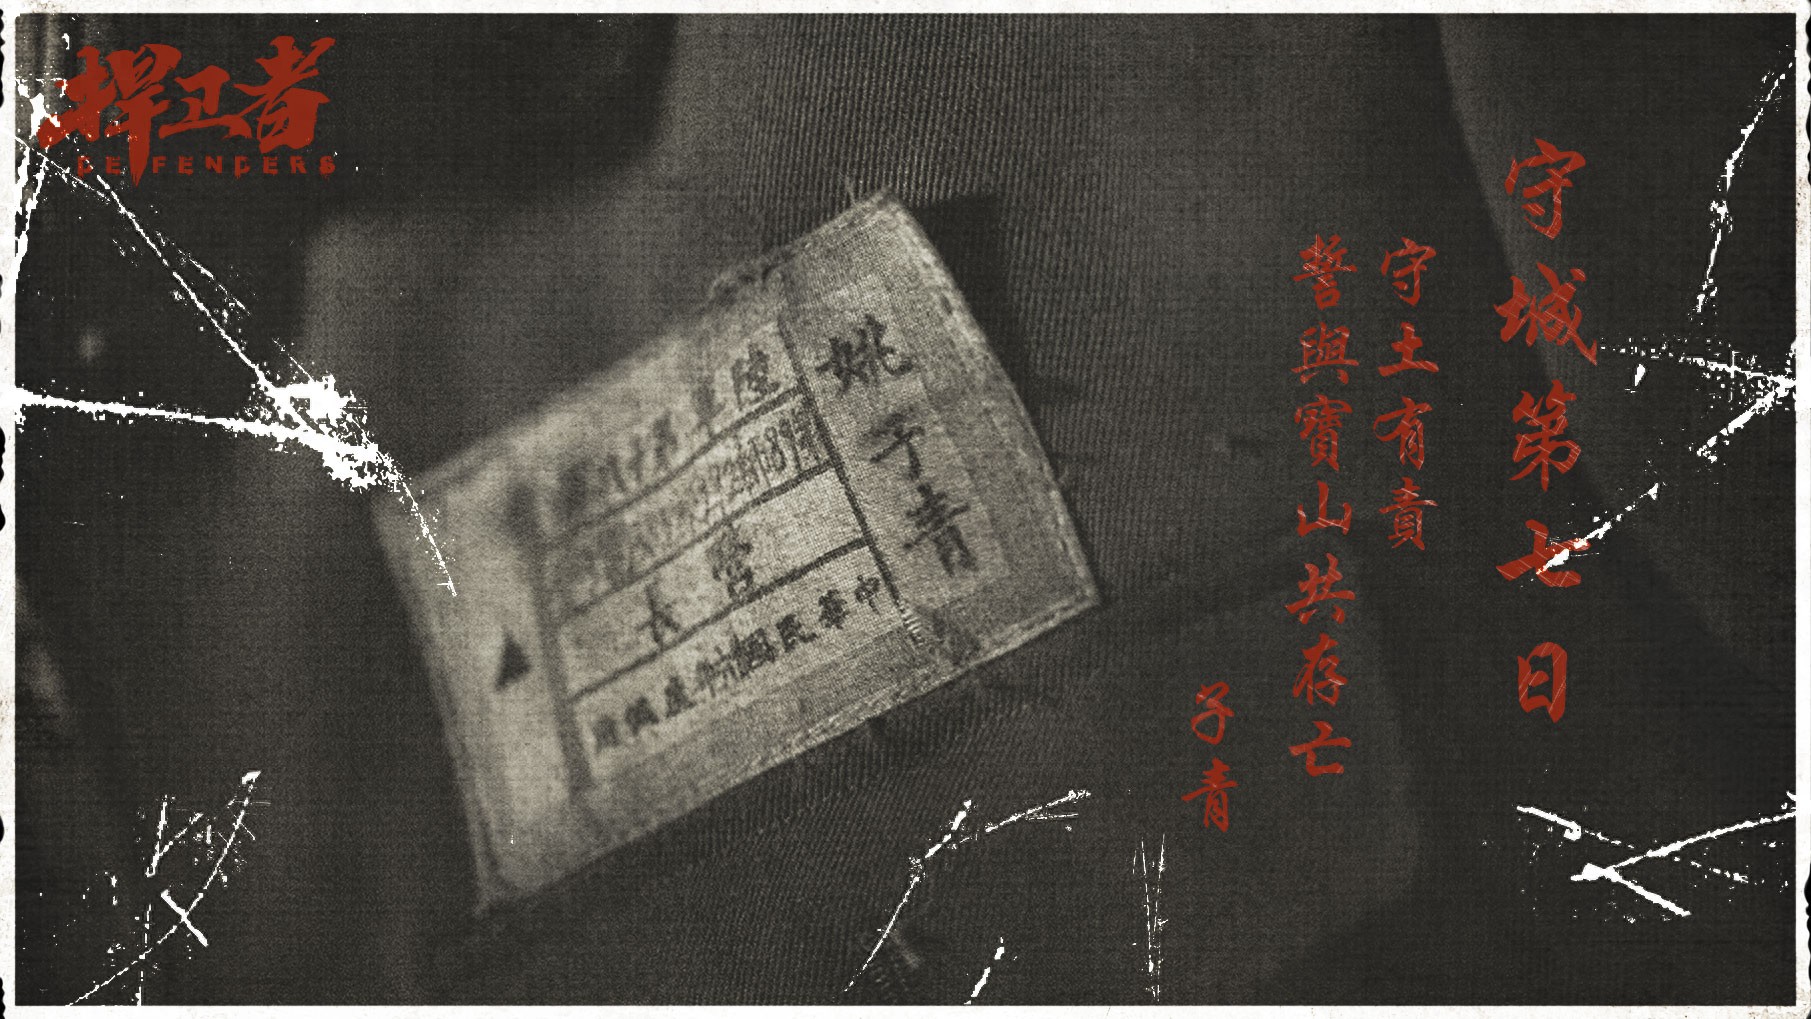 捍卫者
DEFENDERS
守城第七日
守土有責
誓與寶山共存亡
子青
姚子青
營長